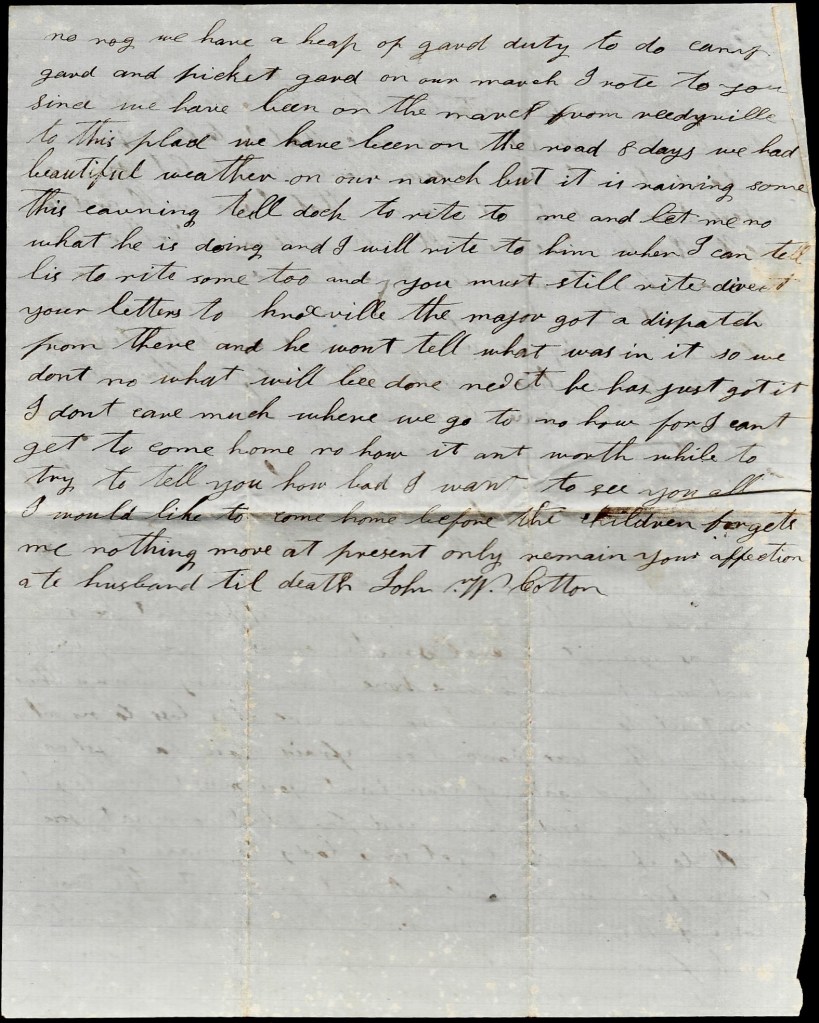 no nog we have a heap of gard duty to do camp
gard and picket gard on our march I rote to you
sinc we have been on the march from reedyville
to this place we have been on the road 8 days we had
beautiful weather on our march but it is raining some
this eavning tell dock to rite to me and let me no
what he is doing and I will rite to him when I can tell
lis to rite some too and you must still rite direct
your letters to knoxville the major got a dispatch
from there and he wont tell what was in it so we
dont no what will bee done next he has just got it
I dont care much where we go to no how for I cant
get to come home no how it ant worth while to
try to tell you how bad I want to see you all
I would like to come home before the children forgets
me nothing more at present only remain your affection
ate husband til death John W. Cotton